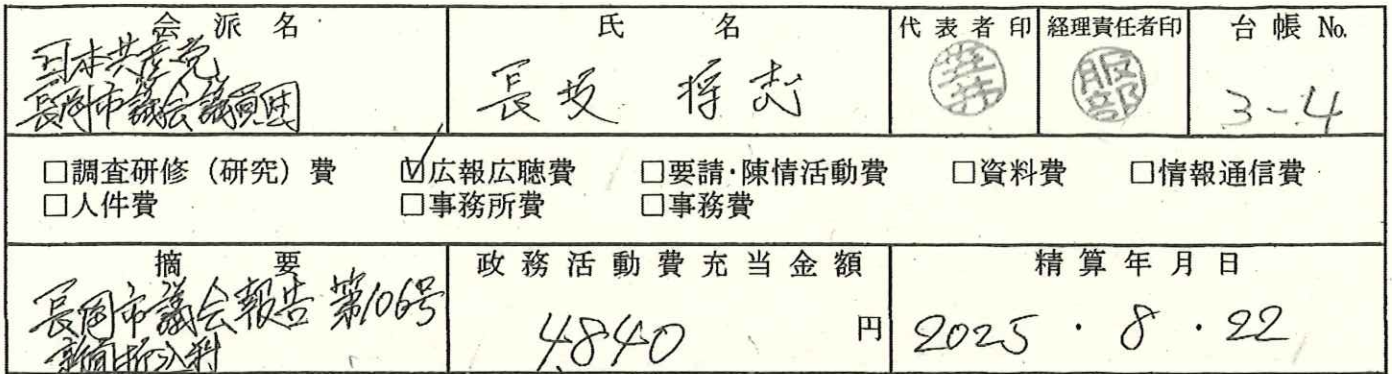 会派名 氏名 代表者印 経理責任者印 台帳No.
日本共産党
長岡市議会議員団
長坂 将志 服部 3-4
□調査研修(研究)費 ☑広報広聴費 □要請・陳情活動費 □資料費 □情報通信費
□人件費 □事務所費 □事務費
摘要 政務活動費充当金額 精算年月日
長岡市議会報告 第106号
新聞折込料
4,840円 2025・8・22